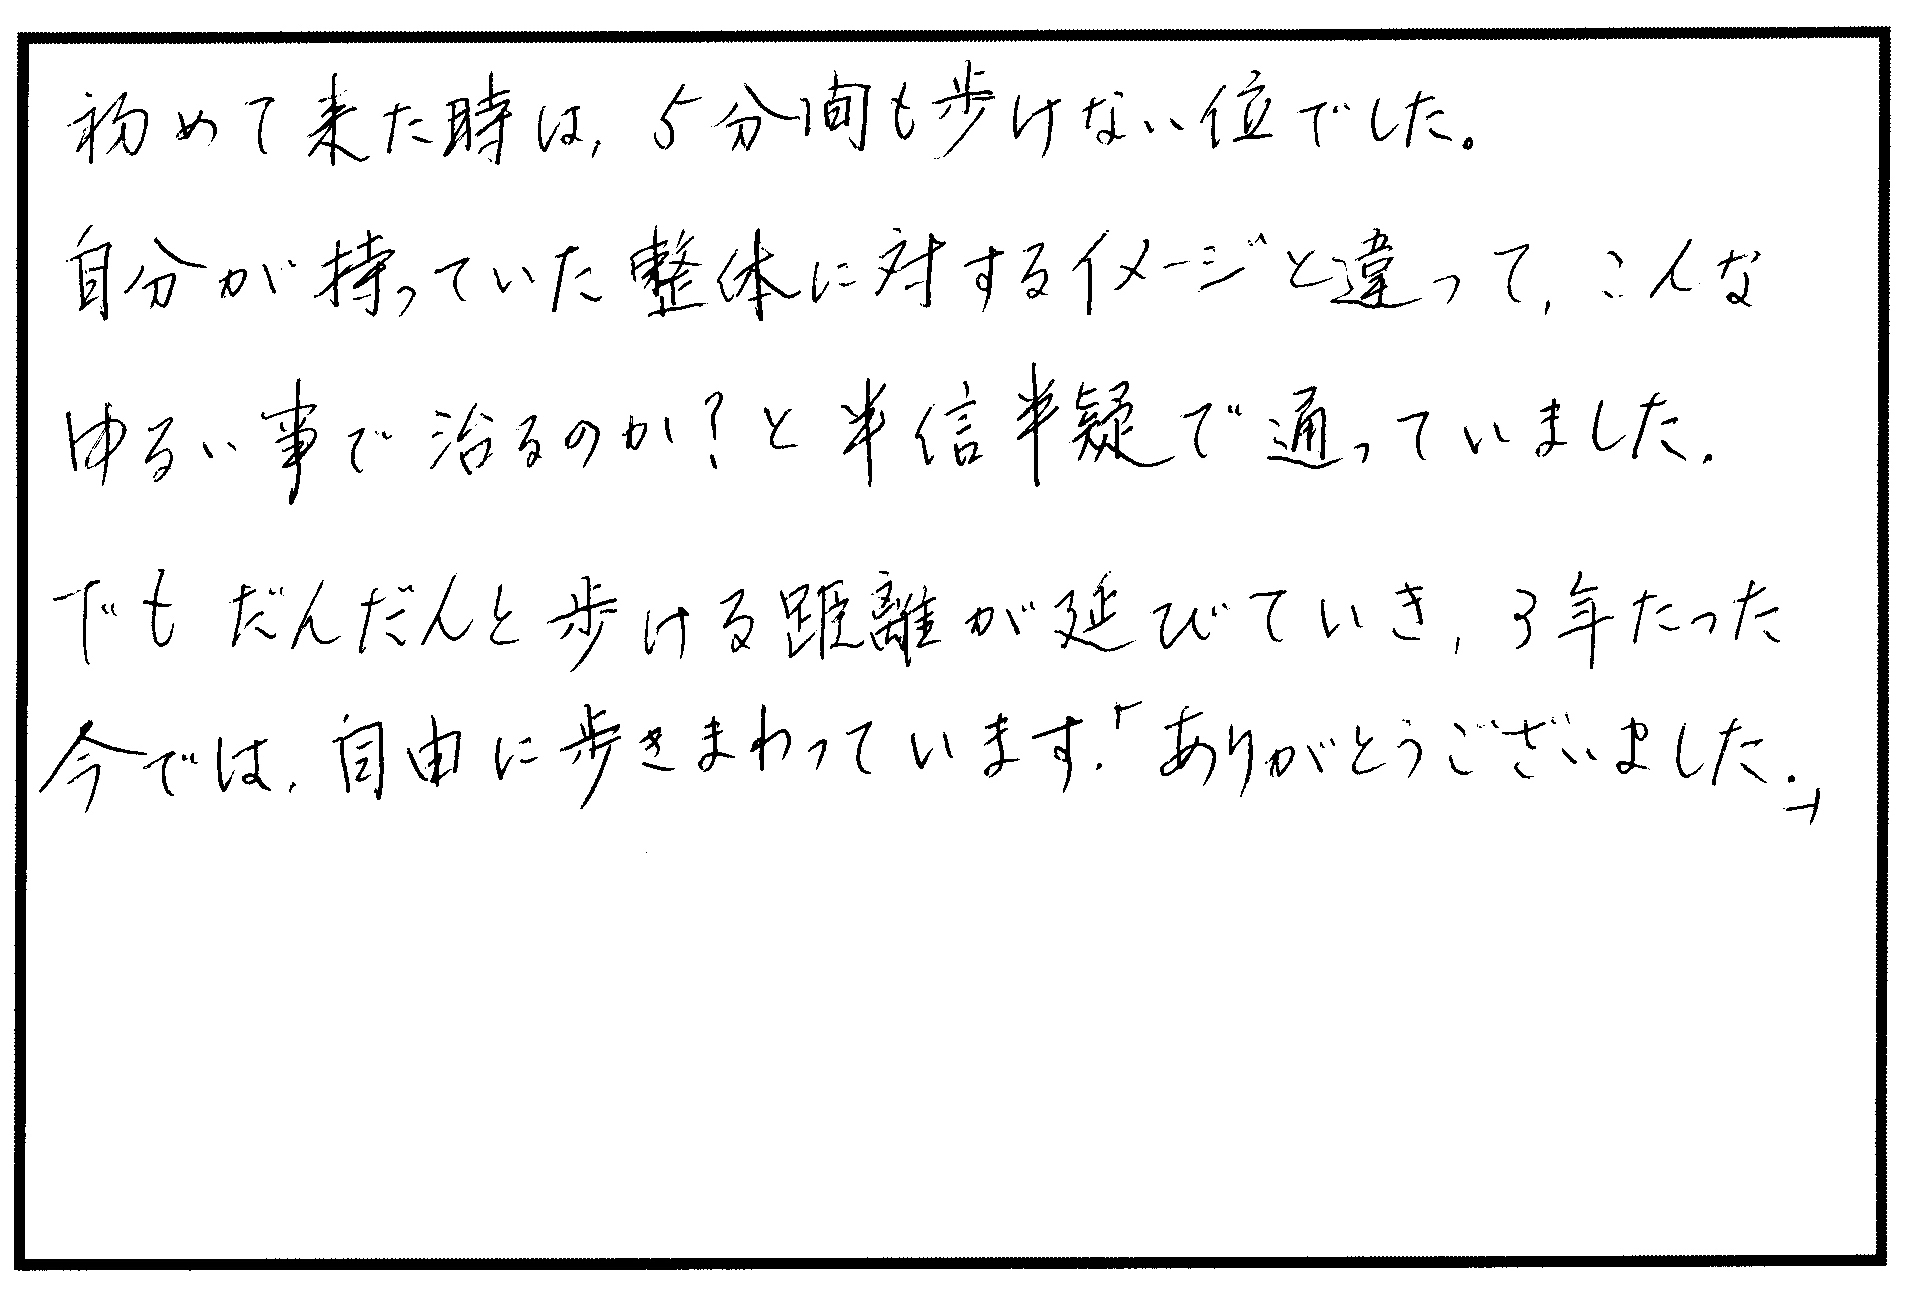 初めて来た時は、5分間も歩けない位でした。
自分が持っていた整体に対するイメージと違って、こんな
ゆるい事で治るのか?と半信半疑で通っていました。
でもだんだんと歩ける距離が延びていき、3年たった
今では、自由に歩きまわっています。「ありがとうございました。」